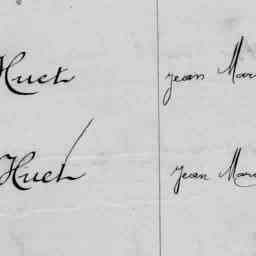 Huet Jean Mar
Huet Jean Mar